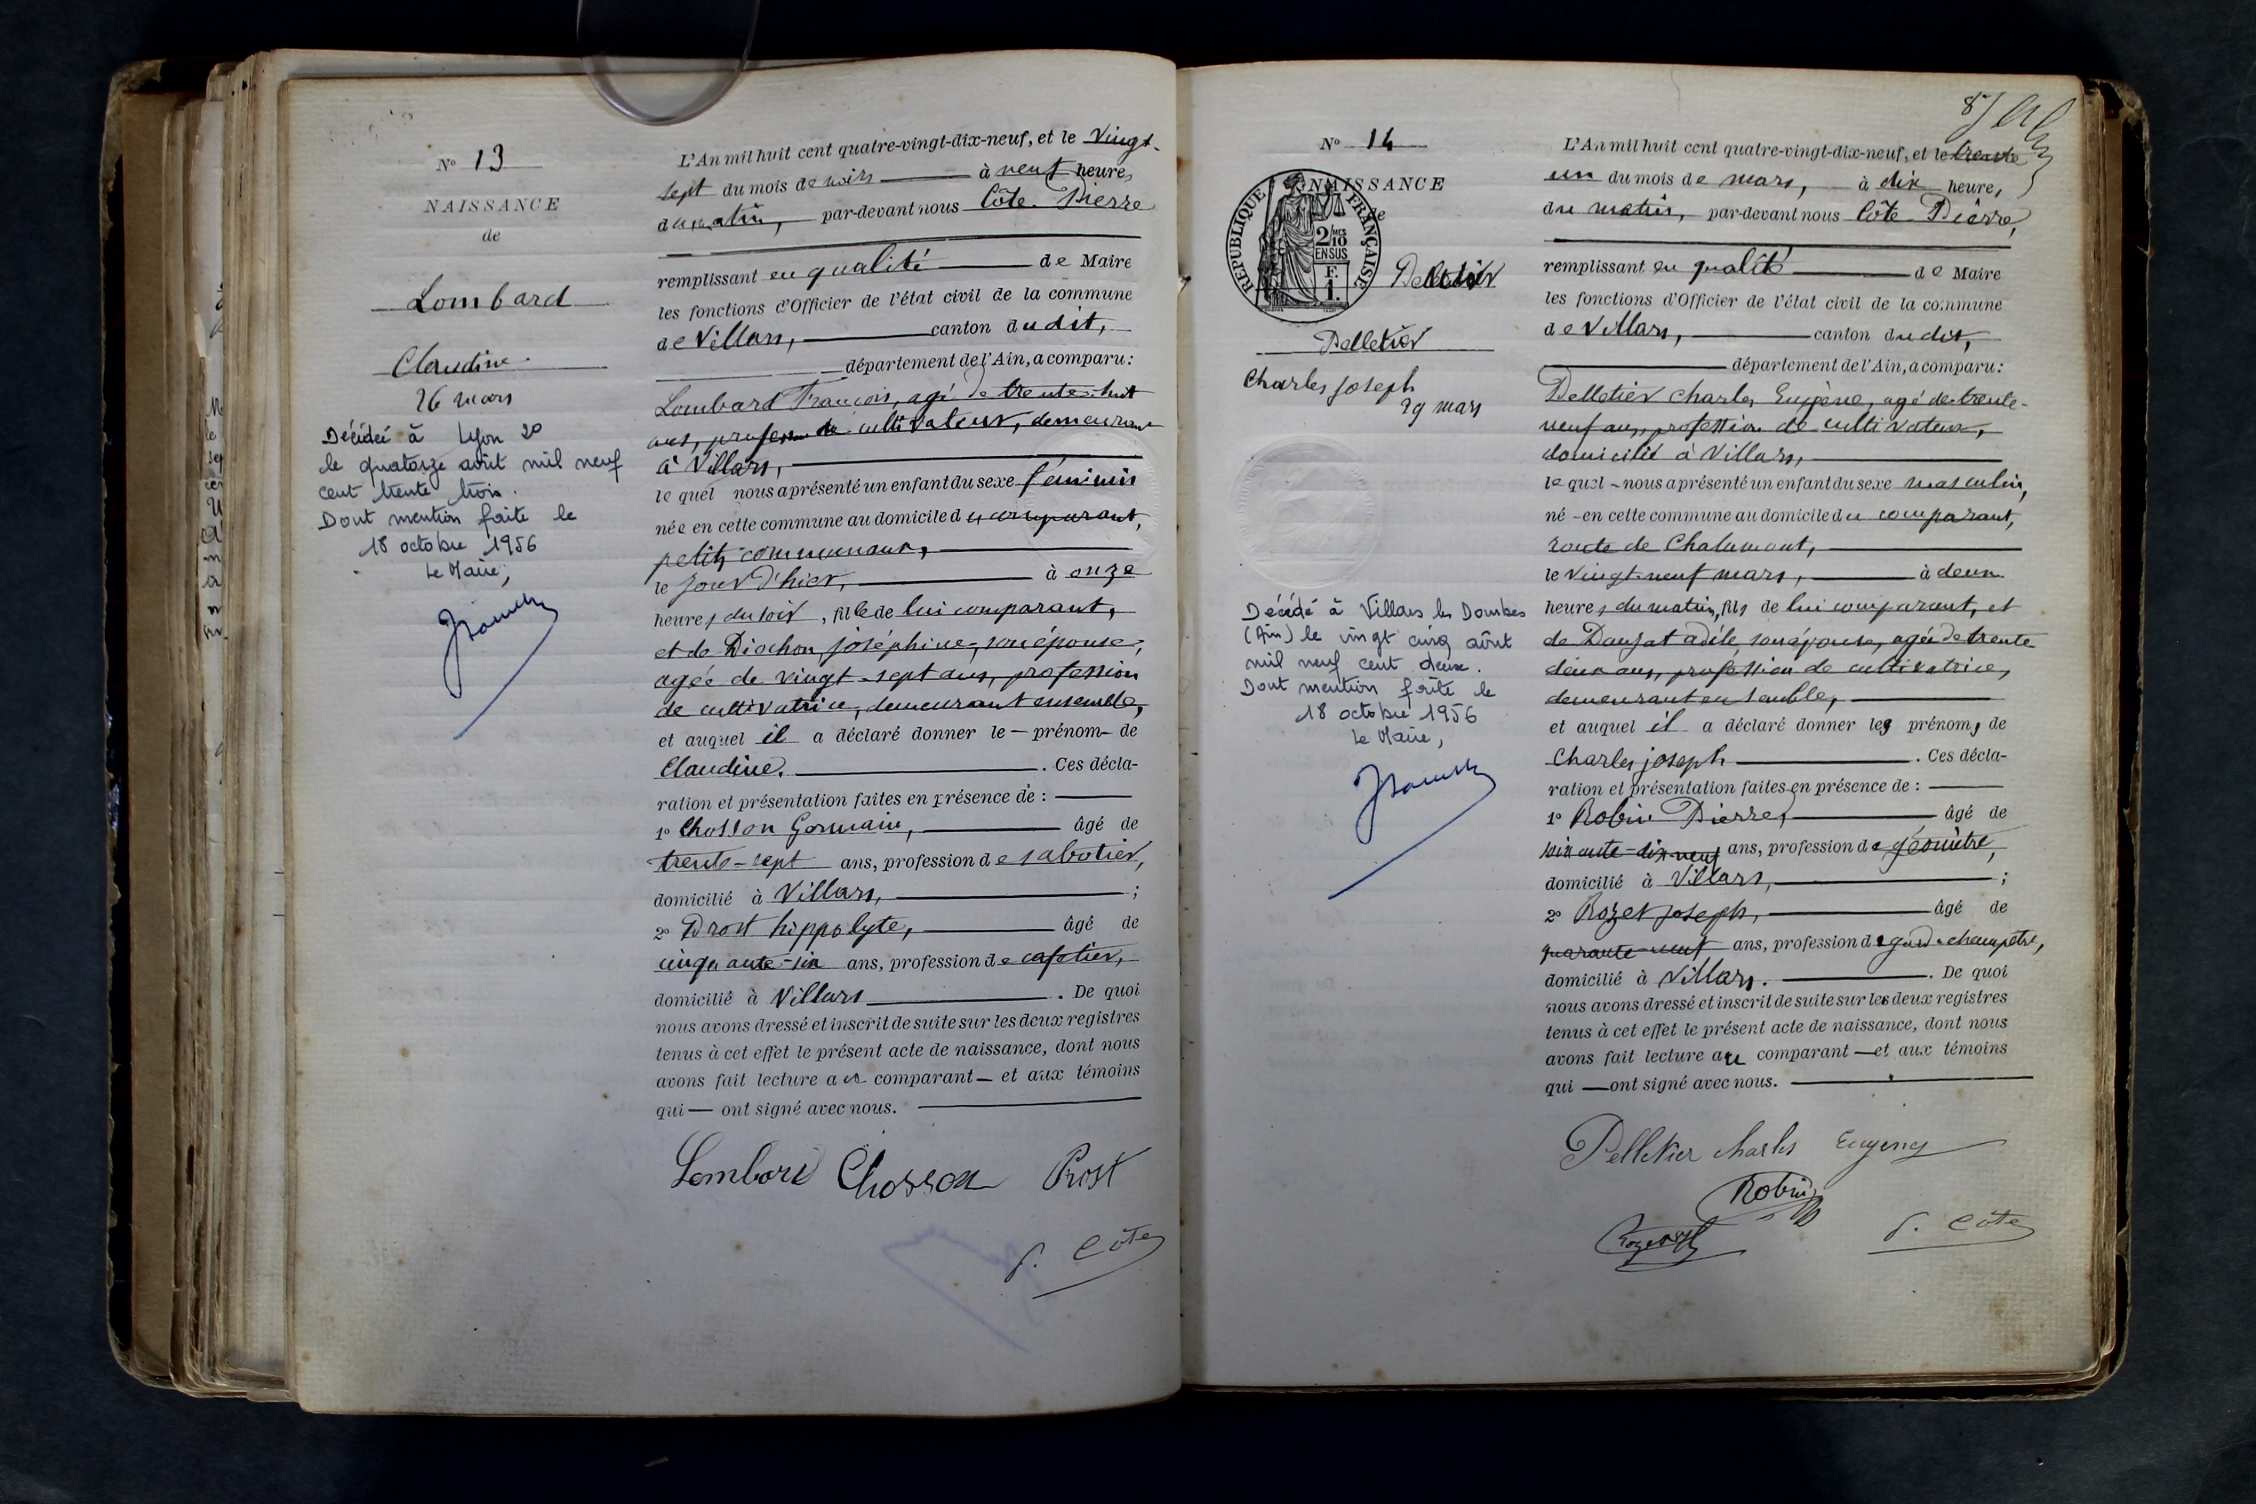 N° 13
NAISSANCE
de
Lombard
Claudine.
26 mars
Décédée à Lyon 2e
le quatorze août mil neuf
cent trente trois.
Dont mention faite le
18 octobre 1956
Le Maire,
L'An mil huit cent quatre-vingt-dix-neuf, et le Vingt-
sept du mois de mars à neuf heures
du matin, par-devant nous Côte Pierre
remplissant en qualité de Maire
les fonctions d'Officier de l'état civil de la commune
de Villars, canton dudit,
département de l'Ain, a comparu:
Lombard François, agé de trente-huit
ans, profession de cultivateur, demeurant
à Villars,
lequel nous a présenté un enfant du sexe féminin
née en cette commune au domicile du comparant,
petits communaux,
le jour d'hier, à onze
heures du soir, fille de lui comparant,
et de Diochon joséphine, son épouse,
agée de vingt-sept ans, profession
de cultivatrice, demeurant ensemble,
et auquel il a déclaré donner le - prénom - de
Claudine. . Ces décla-
ration et présentation faites en présence de :
1° Chosson Germain, âgé de
trente-sept ans, profession de sabotier,
domicilié à Villars, ;
2° Prost hippolyte, âgé de
cinquante-six ans, profession de cafetier,
domicilié à Villars . De quoi
nous avons dressé et inscrit de suite sur les deux registres
tenus à cet effet le présent acte de naissance, dont nous
avons fait lecture au comparant - et aux témoins
qui - ont signé avec nous.
Lombard Chosson Prost
P. Côte
N° 14
NAISSANCE
de
REPUBLIQUE FRANÇAISE
2/10 MES
EN SUS
F.
1.
Pelletier
Pelletier
Charles Joseph
29 mars
Décédé à Villars les Dombes
(Ain) le vingt cinq août
mil neuf cent deux.
Dont mention faite le
18 octobre 1956
Le Maire,
L'An mil huit cent quatre-vingt-dix-neuf, et le trente
un du mois de mars, à dix heures,
du matin, par-devant nous Côte Pierre,
remplissant en qualité de Maire
les fonctions d'Officier de l'état civil de la commune
de Villars, canton dudit,
département de l'Ain, a comparu:
Pelletier Charles Eugène, agé de trente-
neuf ans, profession de cultivateur,
domicilié à Villars,
lequel - nous a présenté un enfant du sexe masculin,
né - en cette commune au domicile du comparant,
route de Chalamont,
le vingt-neuf mars, à deux
heures du matin, fils de lui comparant, et
de Dauzat adèle, son épouse, agée de trente-
deux ans, profession de cultivatrice,
demeurant ensemble,
et auquel il a déclaré donner les prénoms de
Charles joseph . Ces décla-
ration et présentation faites en présence de :
1° Robin Pierre, âgé de
soixante-dix-neuf ans, profession de géomètre,
domicilié à Villars, ;
2° Rozet joseph, âgé de
quarante-neuf ans, profession de garde champêtre,
domicilié à Villars. . De quoi
nous avons dressé et inscrit de suite sur les deux registres
tenus à cet effet le présent acte de naissance, dont nous
avons fait lecture au comparant - et aux témoins
qui - ont signé avec nous.
Pelletier charles Eugène
Robin
P. Côte